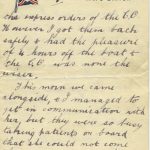 the express orders of the C.O.
However I got them back
safely & had the pleasure
of 4 hours off the boat &
the C.O. was none the
wiser.
This morn we came
alongside, & managed to
get in communication with
her, but they were so busy
taking patients on board
that she could not come